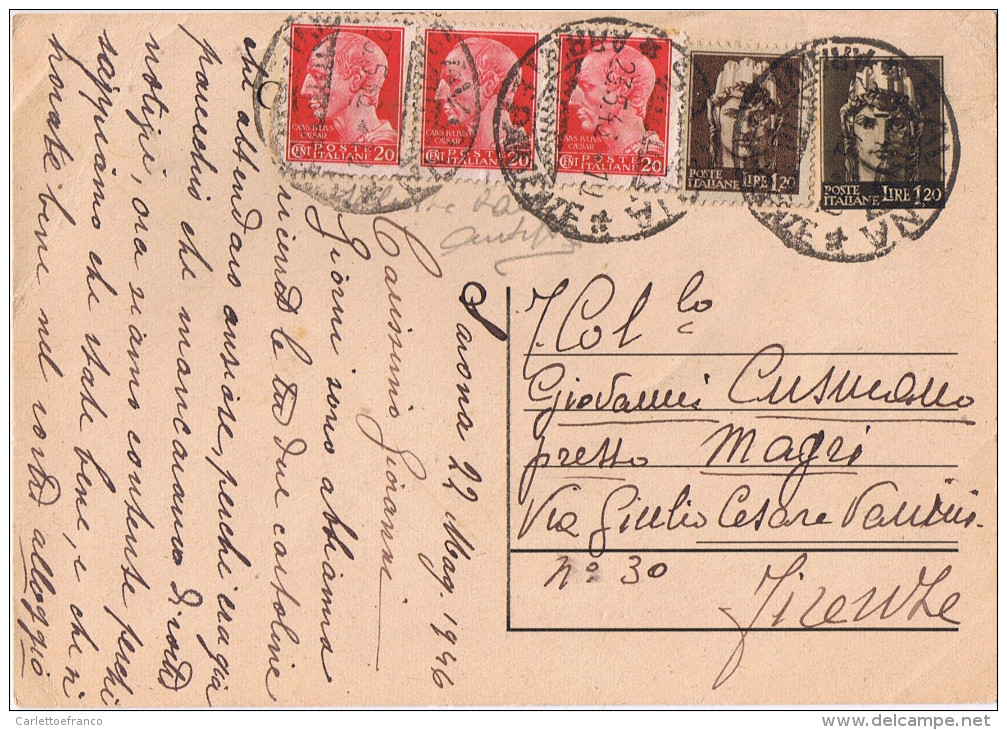 Savona 22 Mag. 1946
Carissimo Giovanni
Giorni sono abbiamo
ricevuto le tue due cartoline
che attendavo ansiose, perchè era già
parecchio che mancavamo di vostre
notizie, ora siamo contente perchè
sappiamo che state bene, e che vi
trovate bene nel vostro alloggio
CAIVS IVLIVS
CAESAR
CENT POSTE
ITALIANE 20
CAIVS IVLIVS
CAESAR
CENT POSTE
ITALIANE 20
CAIVS IVLIVS
CAESAR
CENT POSTE
ITALIANE 20
POSTE
ITALIANE LIRE 1,20
POSTE
ITALIANE LIRE 1,20
23.5.46
Giovanni Cusmano
presso Magri
Via Giulio Cesare Vanini
n° 30
Firenze
Carlettoefranco
http://www.delcampe.net